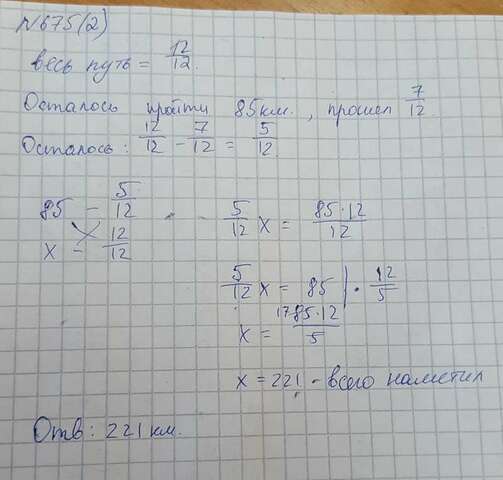 №675(2)
весь путь = 12/12.
Осталось пройти 85км., прошел 7/12.
Осталось: 12/12 - 7/12 = 5/12
85 - 5/12
x - 12/12
5/12 x = 85·12/12
5/12 x = 85 | · 12/5
x = 17 85·12/5
x = 221 - всего наметил
Отв: 221 км.